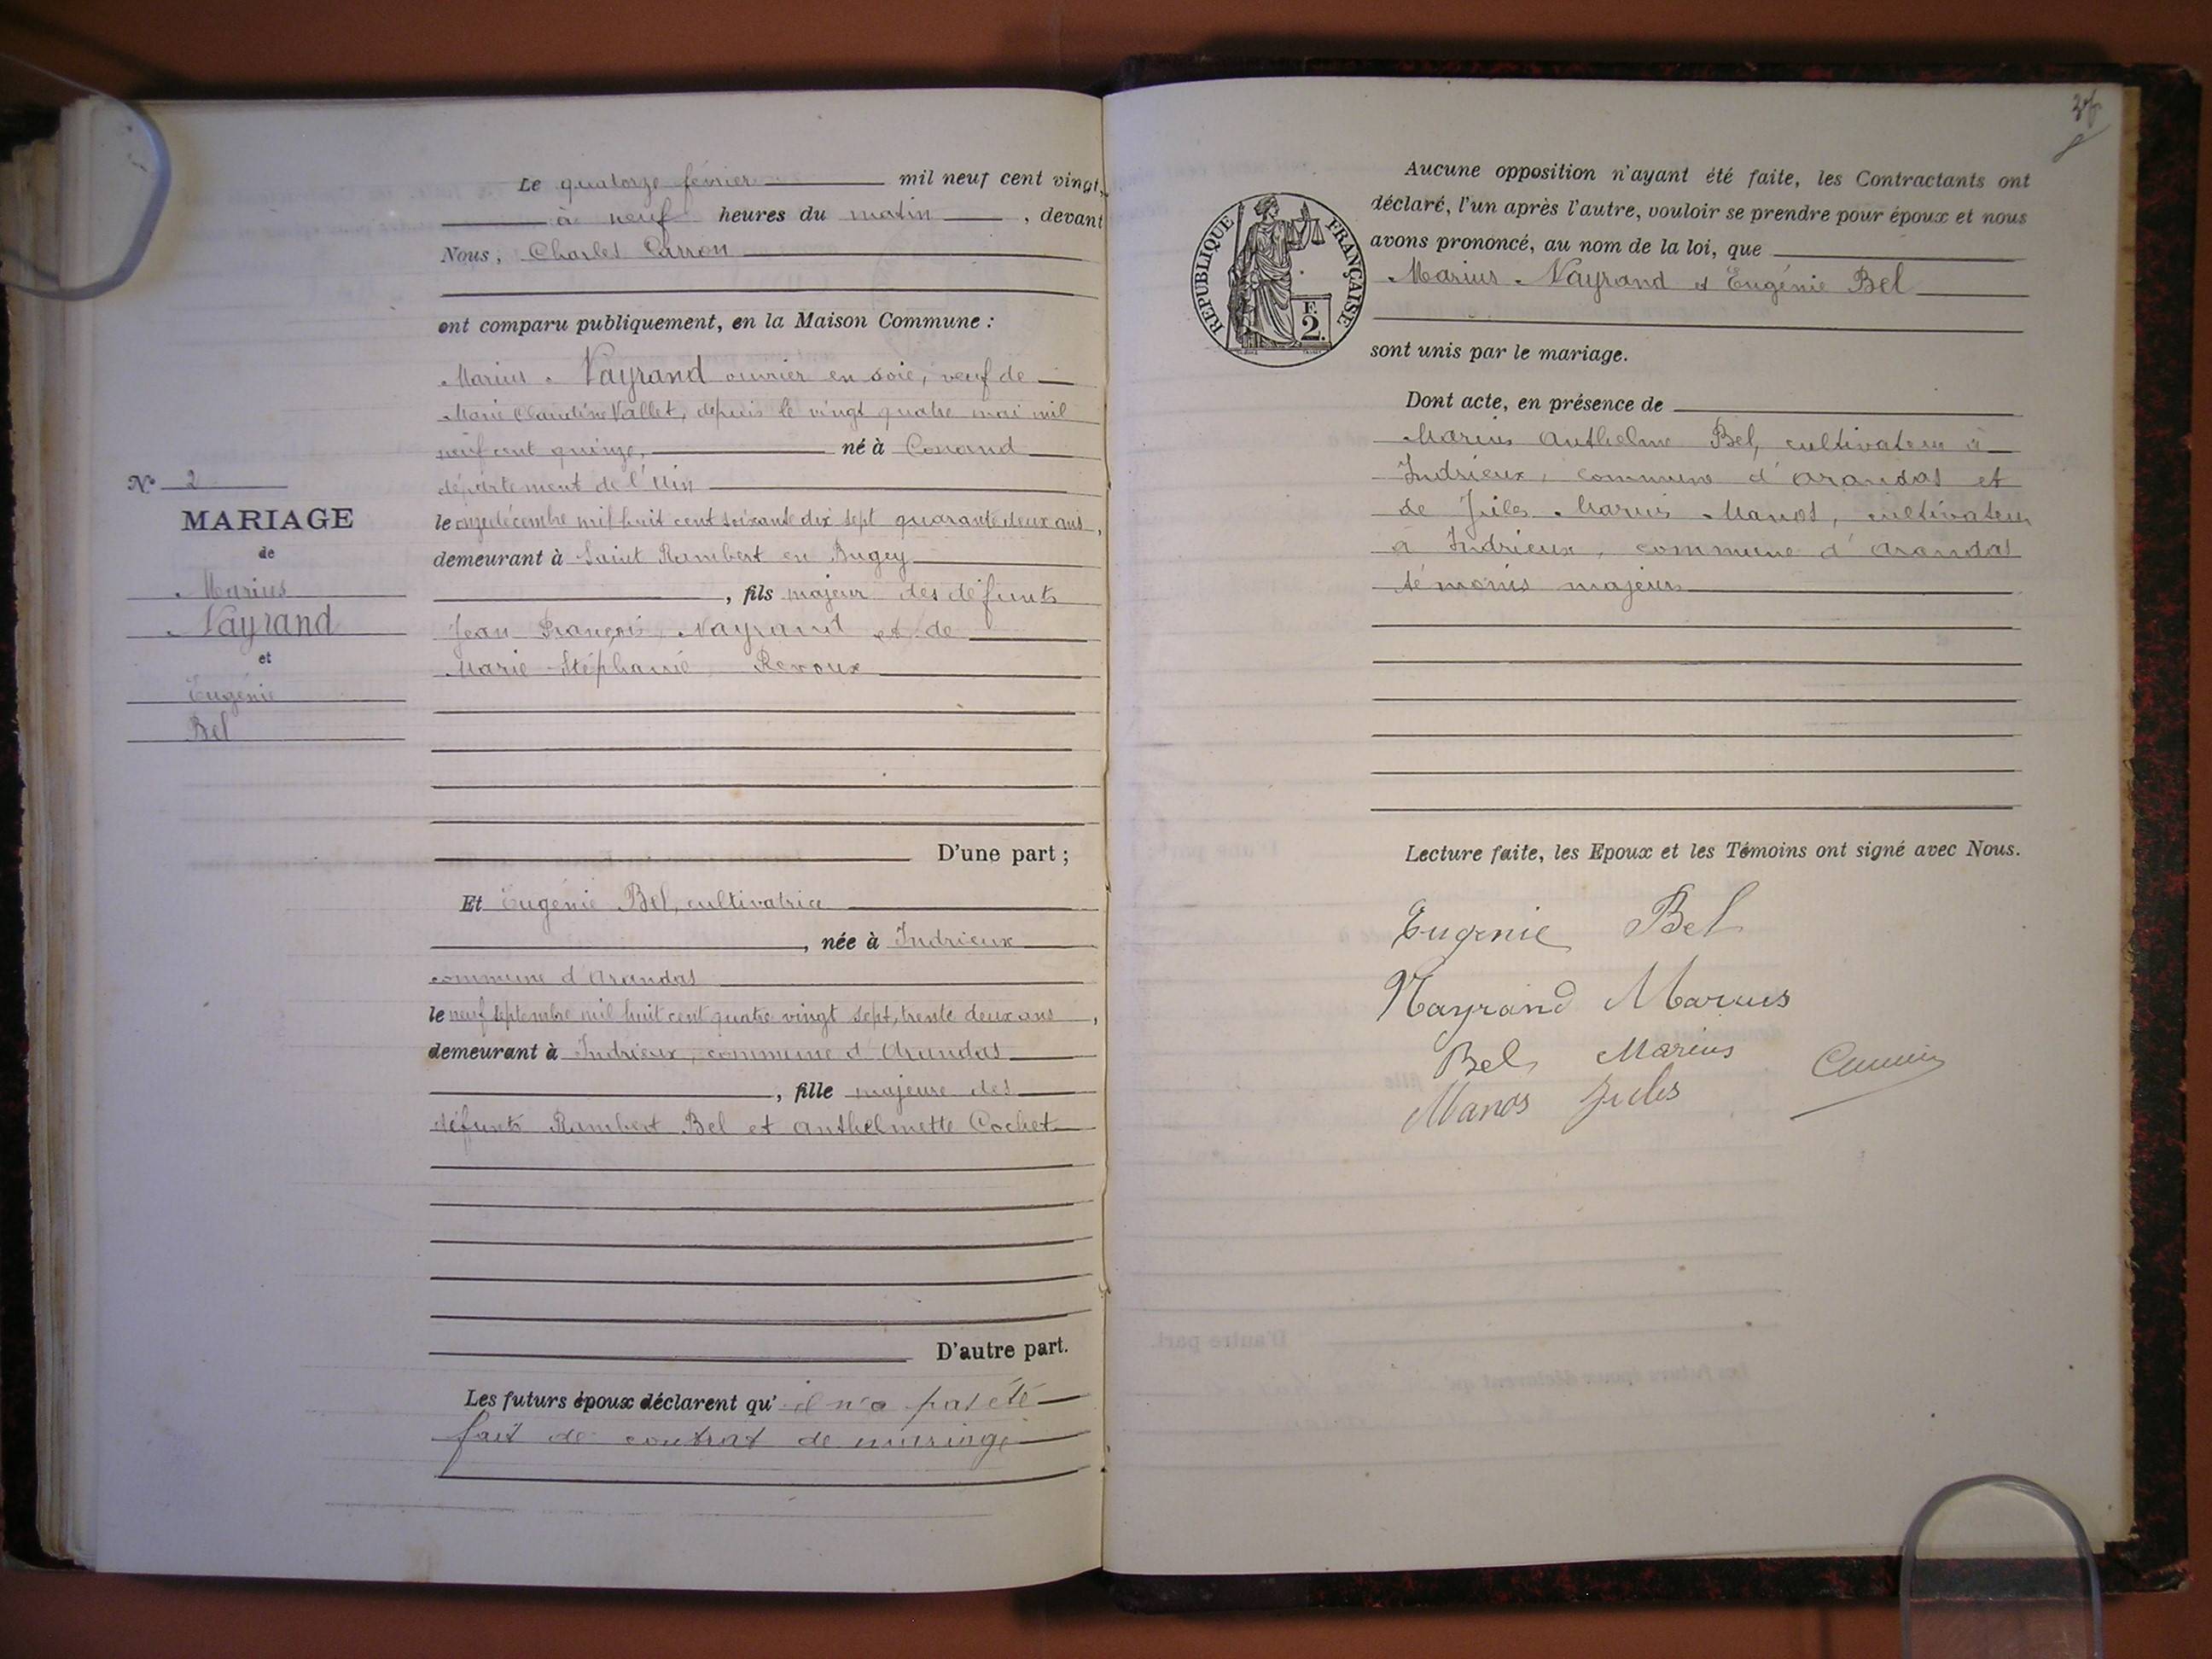 Le quatorze février mil neuf cent vingt,
à neuf heures du matin, devant
Nous, Charles Carron
ont comparu publiquement, en la Maison Commune :
Marius Nayrand ouvrier en soie, veuf de
Marie Claudine Vallet, depuis le vingt quatre mai mil
neuf cent quinze, né à Conand
département de l'Ain
le onze décembre mil huit cent soixante dix sept quarante deux ans,
demeurant à Saint Rambert en Bugey
, fils majeur des défunts
Jean François Nayrand et de
Marie Stéphanie Revoux
D'une part ;
Nº 2
MARIAGE
de
Marius
Nayrand
et
Eugénie
Bel
Et Eugénie Bel, cultivatrice
, née à Indrieux
commune d'Arandas
le neuf septembre mil huit cent quatre vingt sept, trente deux ans,
demeurant à Indrieux, commune d'Arandas
, fille majeure des
défunts Rambert Bel et Anthelmette Cochet
D'autre part.
Les futurs époux déclarent qu'il n'a pas été
fait de contrat de mariage
RÉPUBLIQUE FRANÇAISE
F.
2.
Aucune opposition n'ayant été faite, les Contractants ont
déclaré, l'un après l'autre, vouloir se prendre pour époux et nous
avons prononcé, au nom de la loi, que
Marius Nayrand et Eugénie Bel
sont unis par le mariage.
Dont acte, en présence de
Marius Anthelme Bel, cultivateur à
Indrieux, commune d'Arandas et
de Jules Marius Manos, cultivateur
à Indrieux, commune d'Arandas
témoins majeurs
Lecture faite, les Epoux et les Témoins ont signé avec Nous.
Eugenie Bel
Nayrand Marius
Bel Marius
Manos Jules